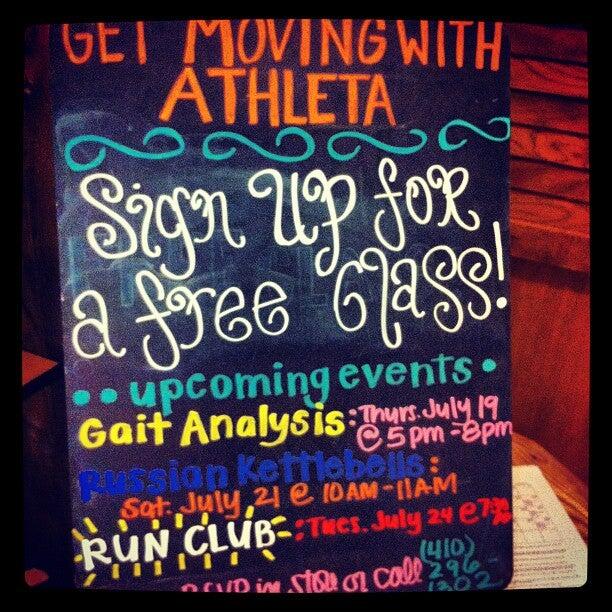 GET MOVING WITH
ATHLETA
Sign Up for
a free Class!
•• upcoming events •
Gait Analysis: Thurs. July 19
@ 5pm - 8pm
Russion Kettlebells:
Sat. July 21 @ 10AM-11AM
RUN CLUB: Tues. July 24 @ 7
RSVP in store or call (410)
296-
1302